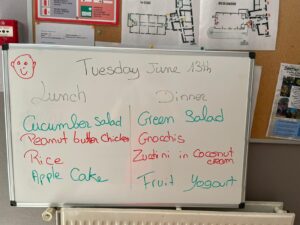 Tuesday June 13th
Lunch
Cucumber Salad
Peanut butter Chicken
Rice
Apple Cake
Dinner
Green Salad
Gnocchis
Zuccini in Coconut
cream
Fruit Yogourt